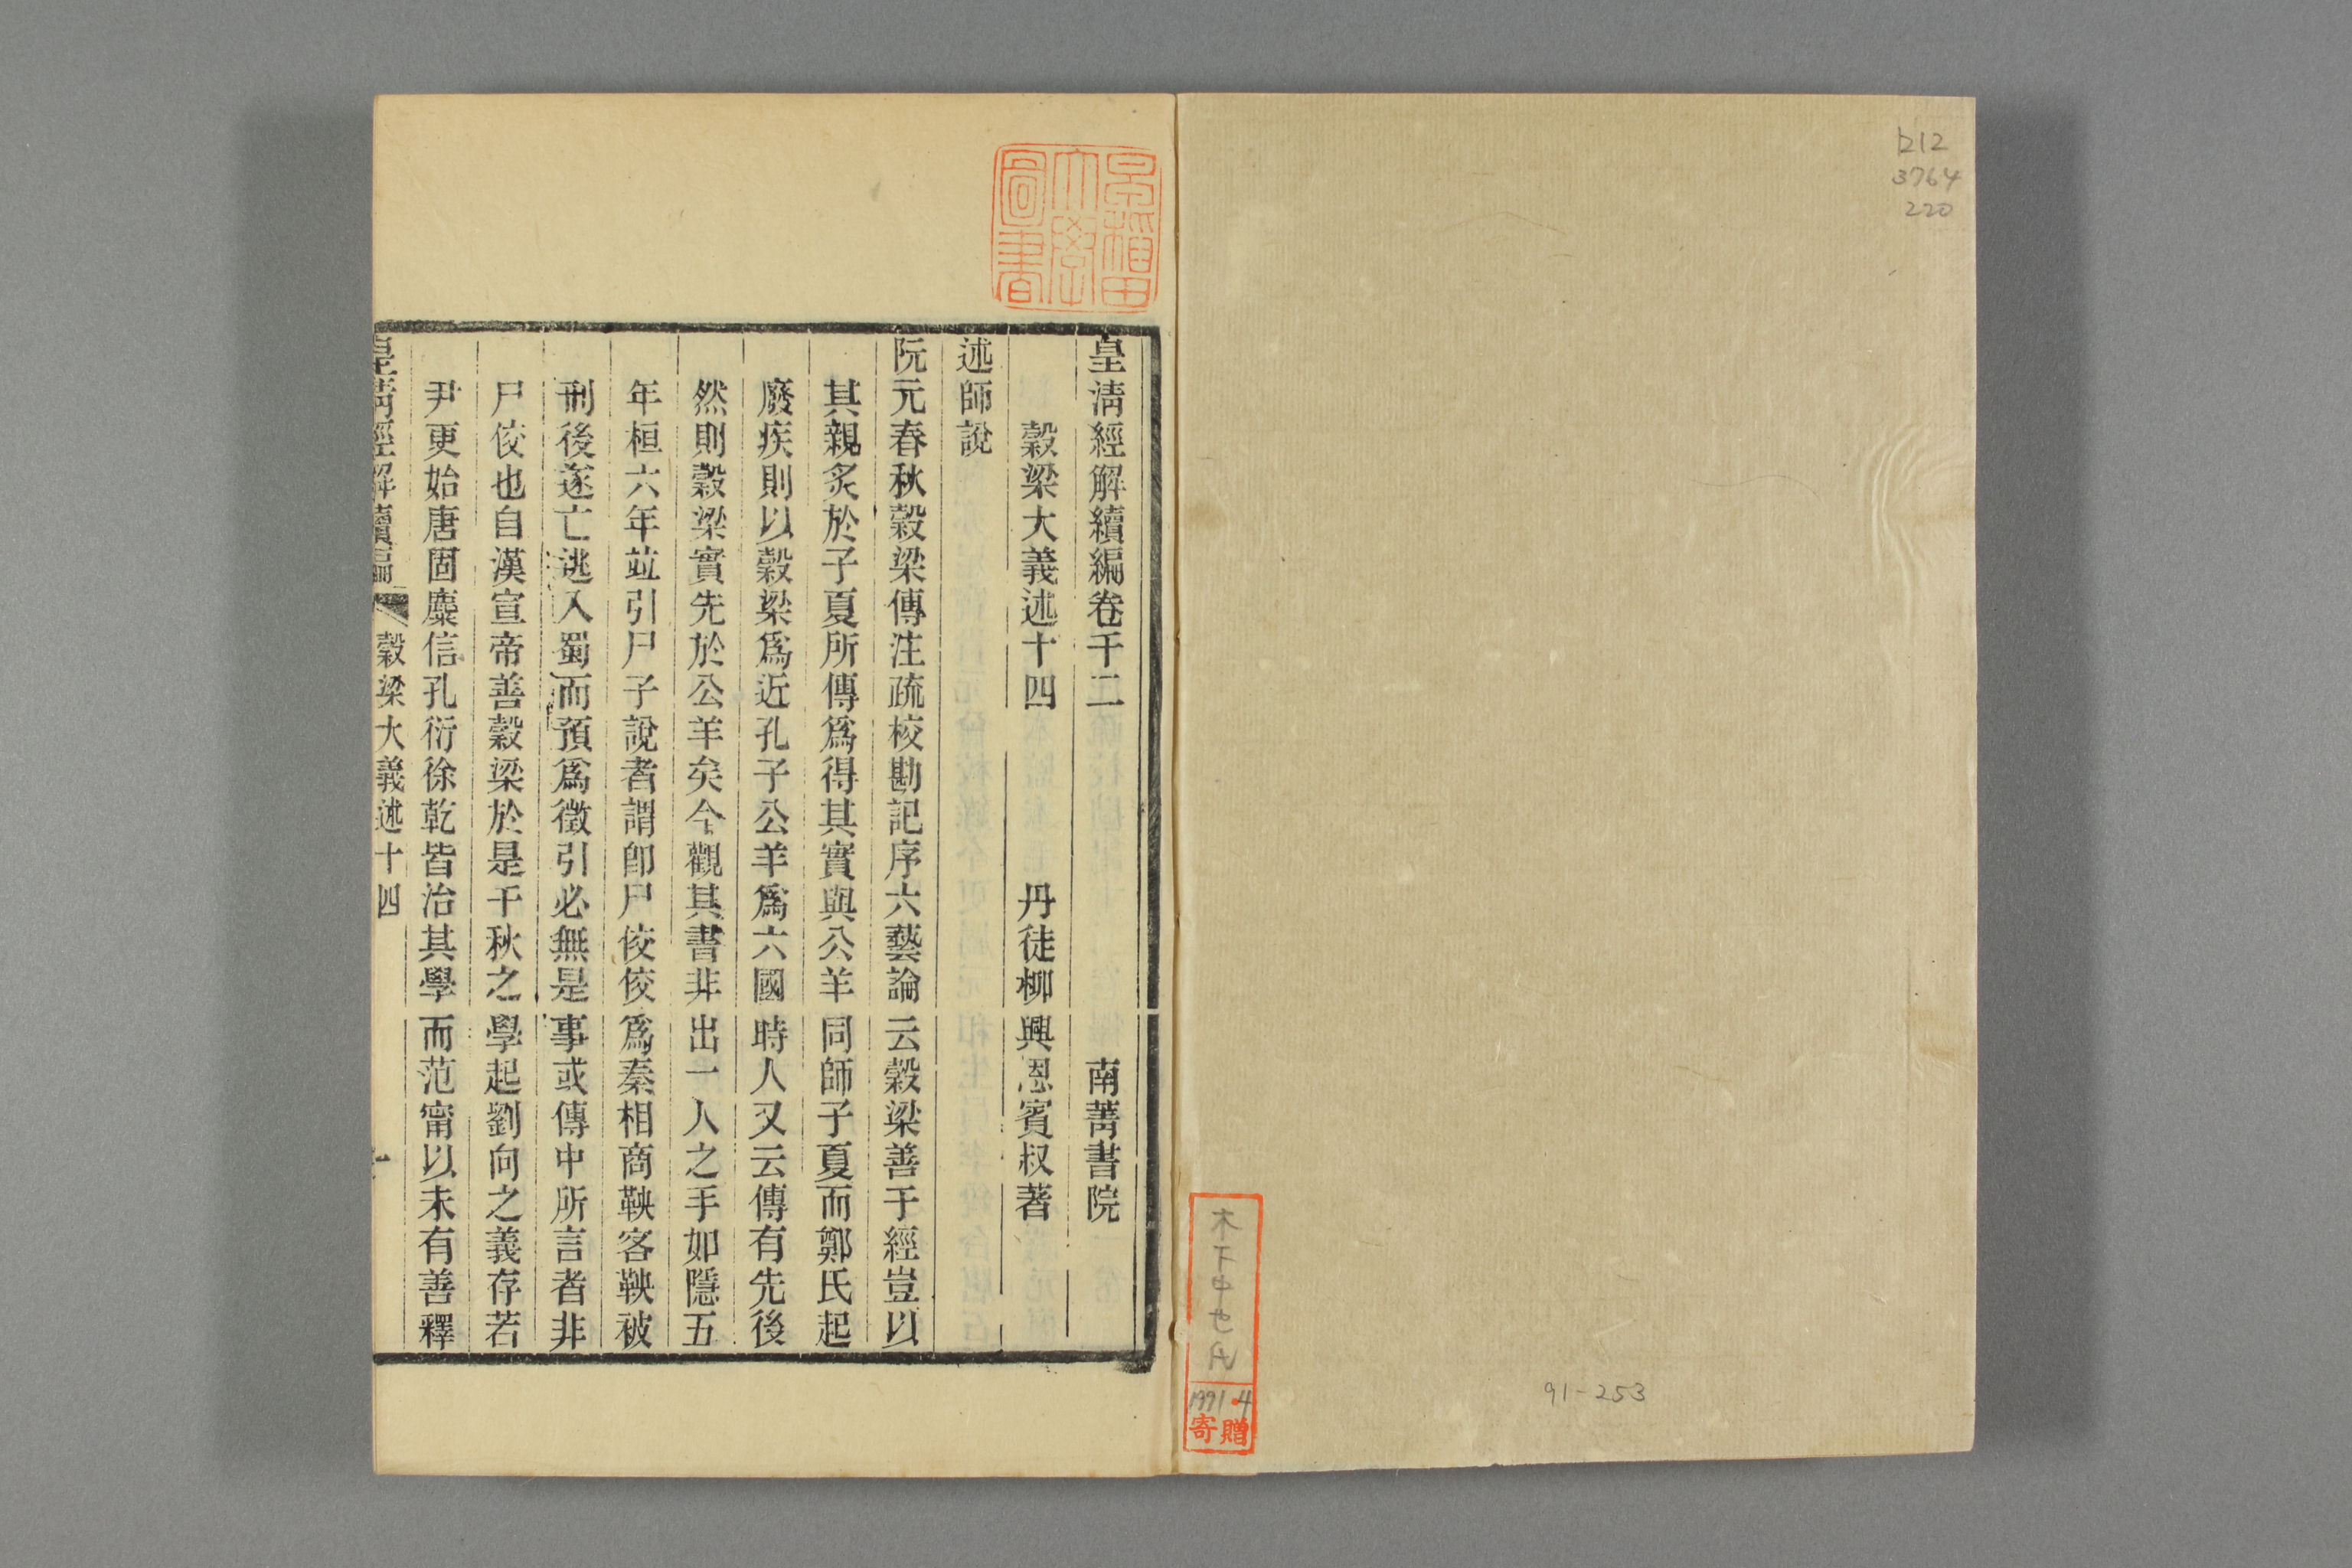 ト212
3764
220
91-253
木下中也氏
1991.4
寄贈
早稲田大學圖書
皇清經解續編卷千二 南菁書院
穀梁大義述十四 丹徒柳興恩賓叔著
述師說
阮元春秋穀梁傳注疏校勘記序六藝論云穀梁善于經豈以
其親炙於子夏所傳爲得其實與公羊同師子夏而鄭氏起
廢疾則以穀梁爲近孔子公羊爲六國時人又云傳有先後
然則穀梁實先於公羊矣今觀其書非出一人之手如隱五
年桓六年竝引尸子說者謂卽尸佼佼爲秦相商鞅客鞅被
刑後遂亡逃入蜀而預爲徵引必無是事或傳中所言者非
尸佼也自漢宣帝善穀梁於是千秋之學起劉向之義存若
尹更始唐固麋信孔衍徐乾皆治其學而范甯以未有善釋
皇清經解續編 穀梁大義述十四 一